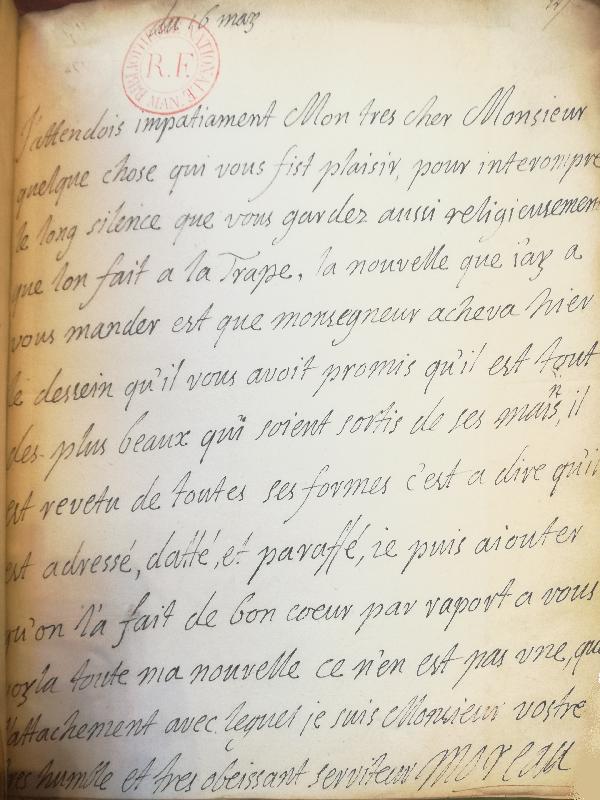 du 16 may
BIBLIOTHEQUE NATIONALE MAN.
R.F.
J'attendois impatiament Mon tres cher Monsieur
quelque chose qui vous fist plaisir, pour interompre
le long silence que vous gardez aussi religieusement
que lon fait a la Trape, la nouvelle que i'ay a
vous mander est que monsegneur acheva hier
le dessein qu'il vous avoit promis qu'il est tout
des plus beaux qui soient sortis de ses mains, il
est revetu de toutes ses formes c'est a dire qu'il
est adressé, datté, et paraffé, ie puis aiouter
qu'on l'a fait de bon coeur par raport a vous
voyla toute ma nouvelle ce n'en est pas vne, que
l'attachement avec lequel je suis Monsieur vostre
tres humble et tres obeissant serviteur Moreau